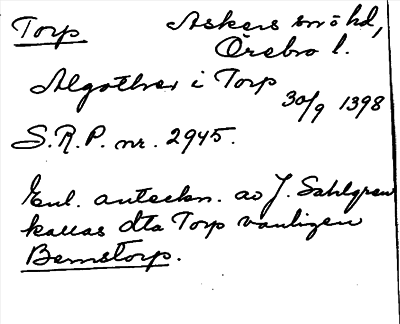 Torp Askers sn o hd,
Örebro l.
Algother i Torp
30/9 1398
S.R.P. nr. 2945.
Enl. anteckn. av J. Sahlgren
kallas dta Torp vanligen
Bemstorp.